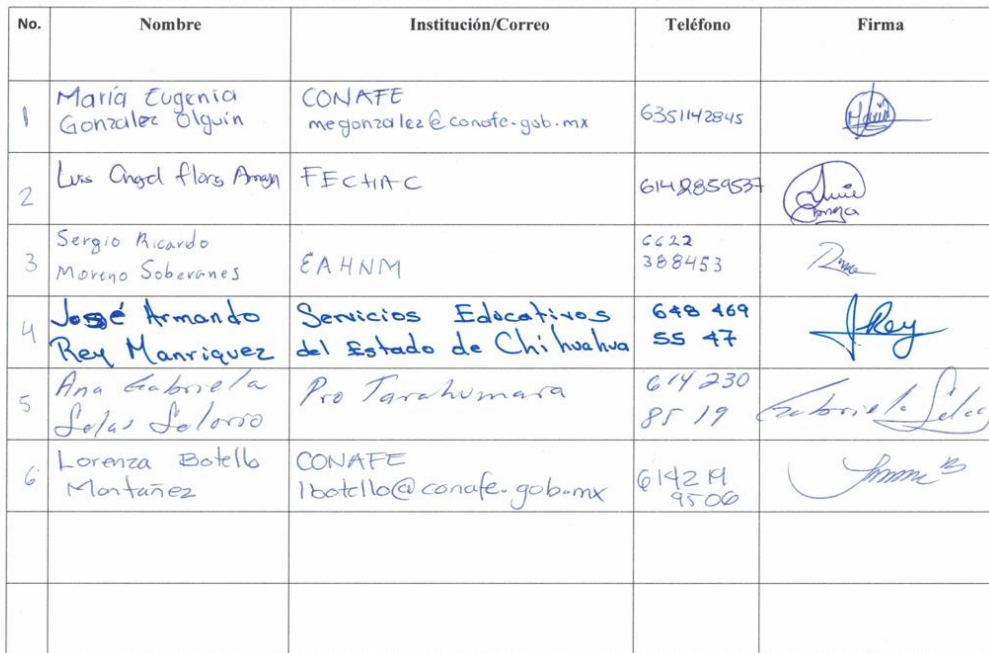 No. Nombre Institución/Correo Teléfono Firma
1 María Eugenia González Olguín CONAFE megonzalez@conafe.gob.mx 6351142845
2 Luis Angel flores FECHAC 6142859537
3 Sergio Ricardo Moreno Soberanes EAHNM 6622 388453
4 José Armando Rey Manriquez Servicios Educativos del Estado de Chihuahua 648 469 55 47 J.Rey
5 Ana Gabriela Salas Solorio Pro Tarahumara 614 230 85 19 Gabriela Salas
6 Lorenza Botello Montañez CONAFE lbotello@conafe.gob.mx 9506